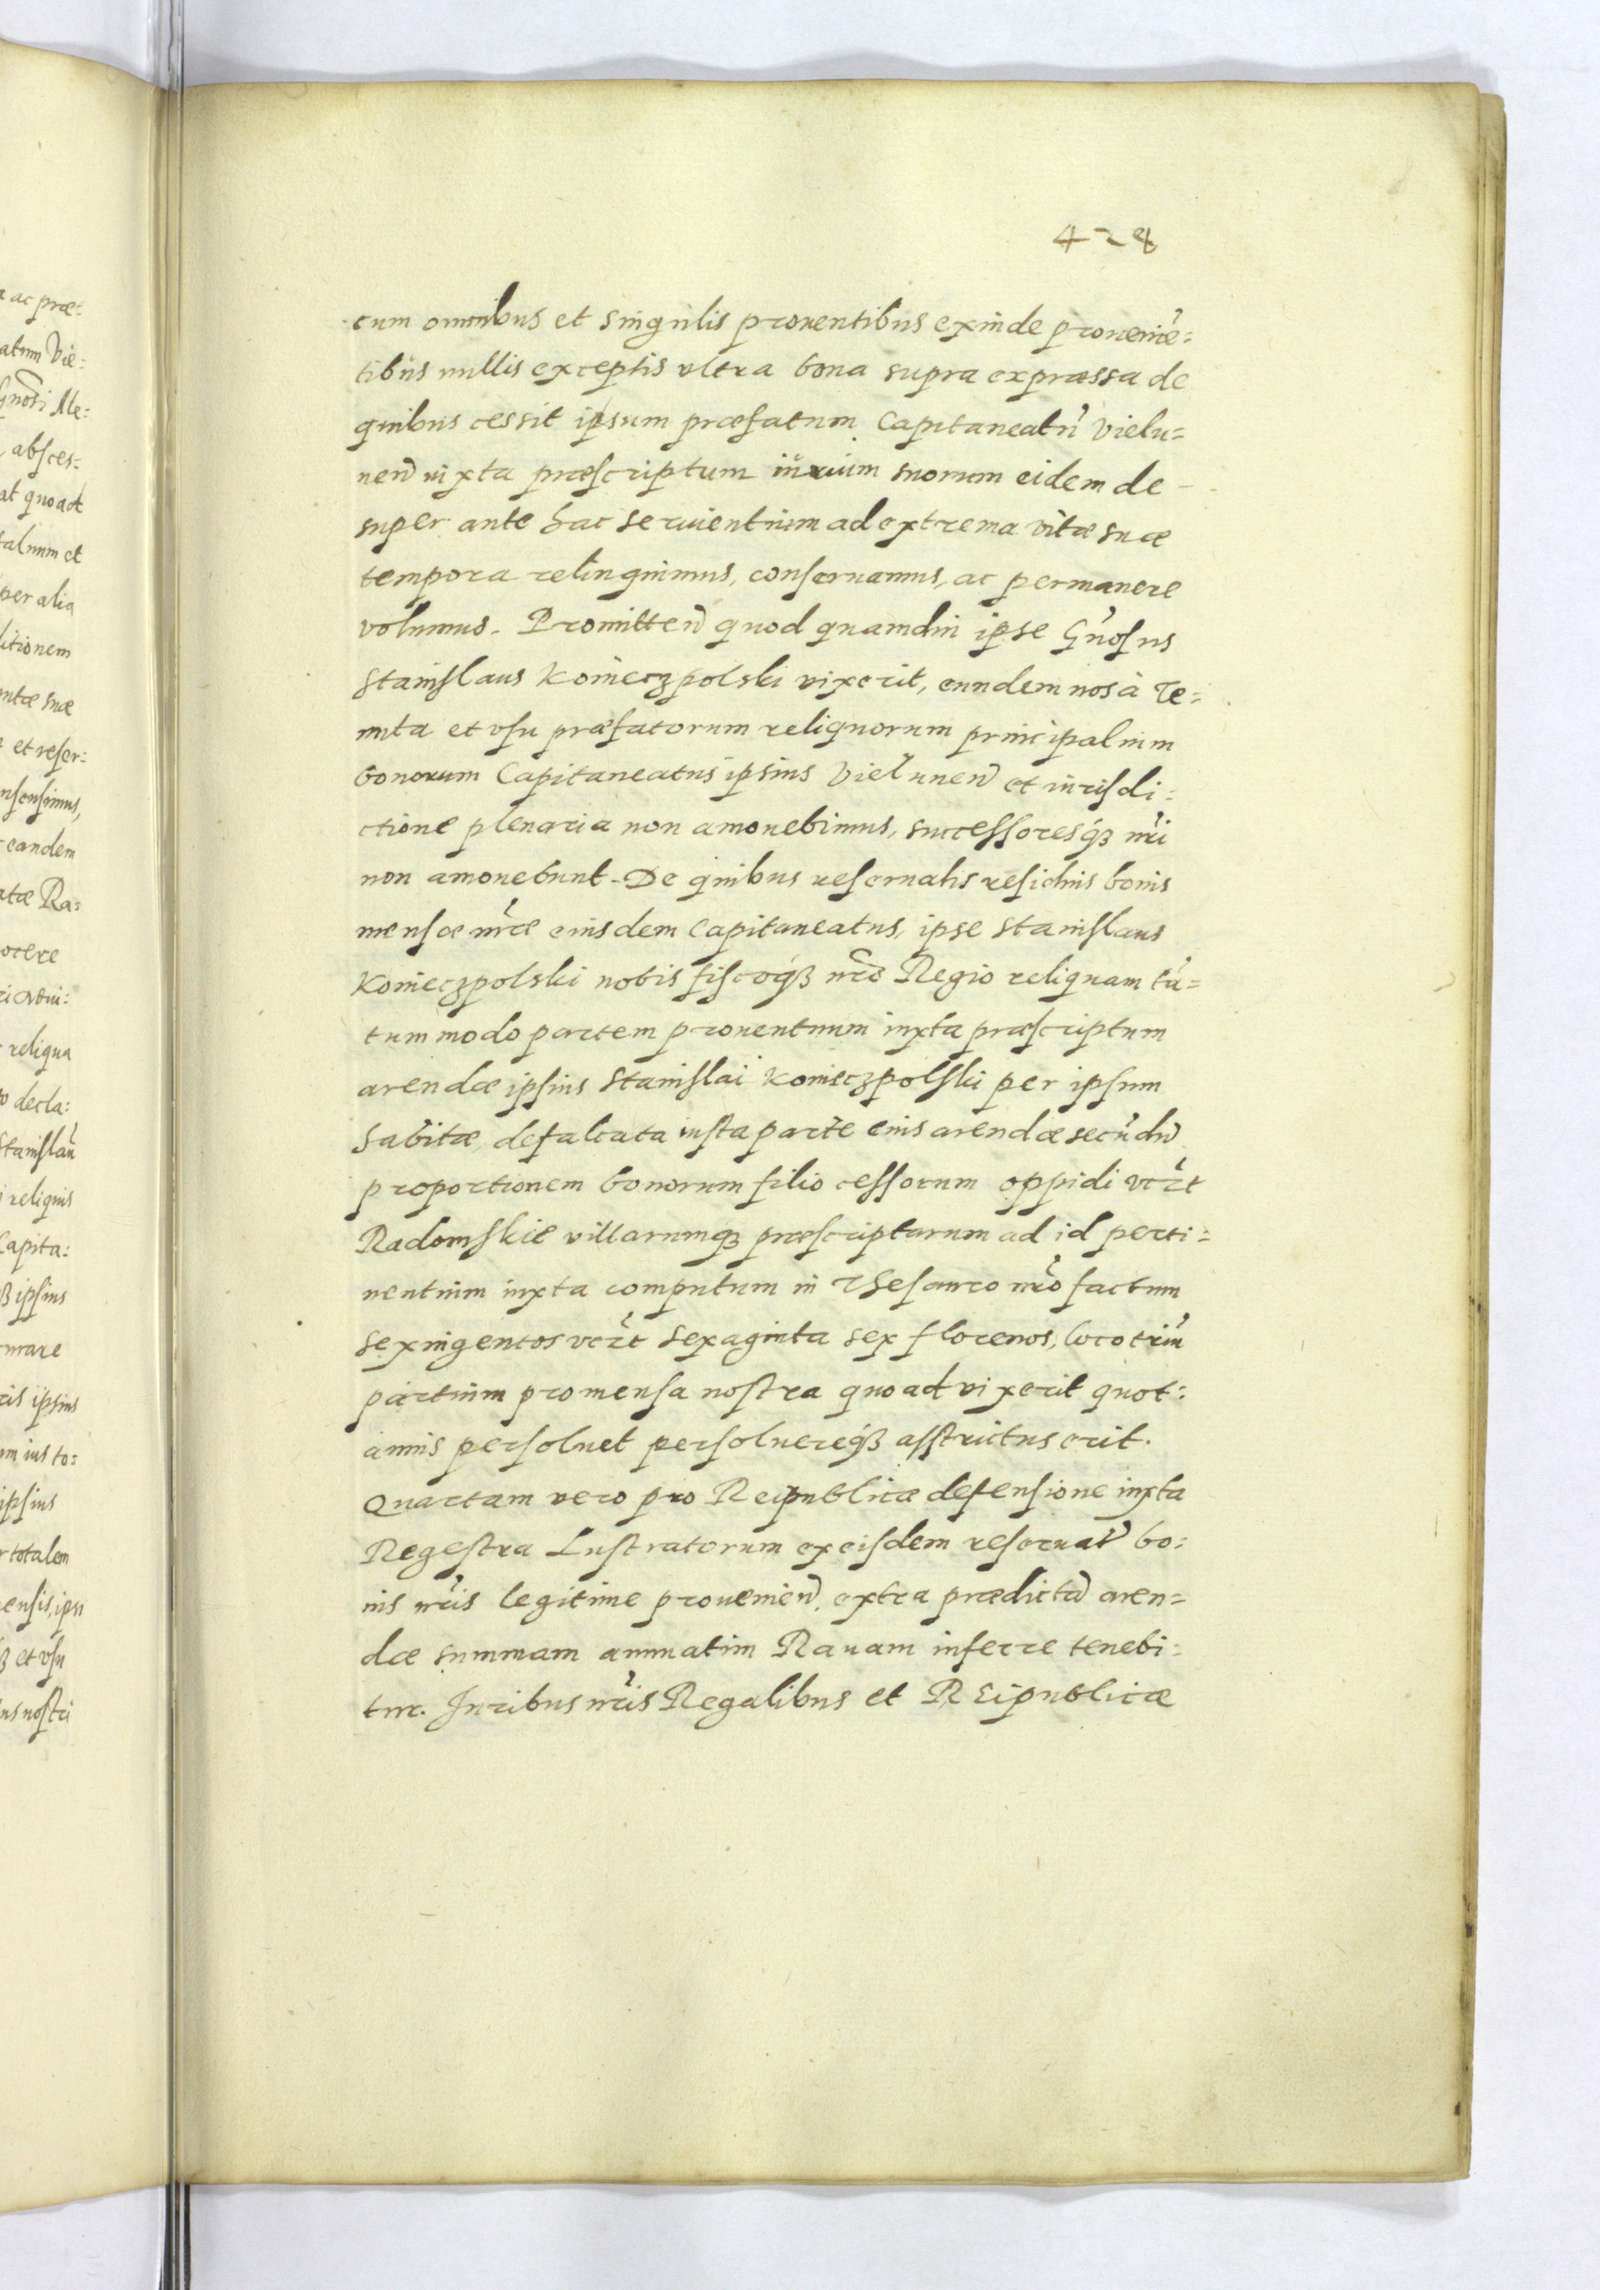 428
cum omnibus et singulis prouentibus exinde prouenie᷑=
tibus nullis exceptis vltra bona supra expressa de
quibus cessit ipsum præfatum Capitaneatu᷑ Vielu=
nen̄ iuxta præscriptum iurium suorum eidem de-
super ante hac seruientium ad extrema vitæ suæ
tempora relinquimus, conseruamus, ac permanere
volumus. Promitten̄ quod quamdiu ipse Gn̄osus
Stanislaus Konieczpolski vixerit, eundem nos à Te=
nuta et vsu præfatorum reliquorum principalium
bonorum Capitaneatus ipsius Vielunen̄ et iurisdi=
ctione plenaria non amouebimus, successoresq́ꝫ nr̄i
non amouebunt. De quibus reseruatis residuis bonis
mensæ nr̄æ eiusdem Capitaneatus, ipse Stanislaus
Konieczpolski nobis fiscoq́ꝫ nr̄o Regio reliquam ta᷑=
tummodo partem prouentuum iuxta præscriptum
arendæ ipsius Stanislai Konieczpolski per ipsum
habitæ, defalcata iusta parte eius arendæ secu᷑du᷑
proportionem bonorum filio cessorum oppidi vtz̄t
Radomskie villarumqꝫ præscriptarum ad id perti=
nentium iuxta computum in Thesauro nr̄o factum
sexingentos vtz̄t sexaginta sex florenos, loco triu᷑
partium pro mensa nostra quoad vixerit quot=
annis persoluet persoluereq́ꝫ asstrictus erit.
Quartam vero pro Reipublicæ defensione iuxta
Regestra Lustratorum ex eisdem reseruat̄ bo=
nis nr̄is legitime prouenien̄, extra prædicta᷑ aren=
dæ summam annuatim Rauam inferre tenebi=
tur. Iuribus nr̄is Regalibus et REipublicæ